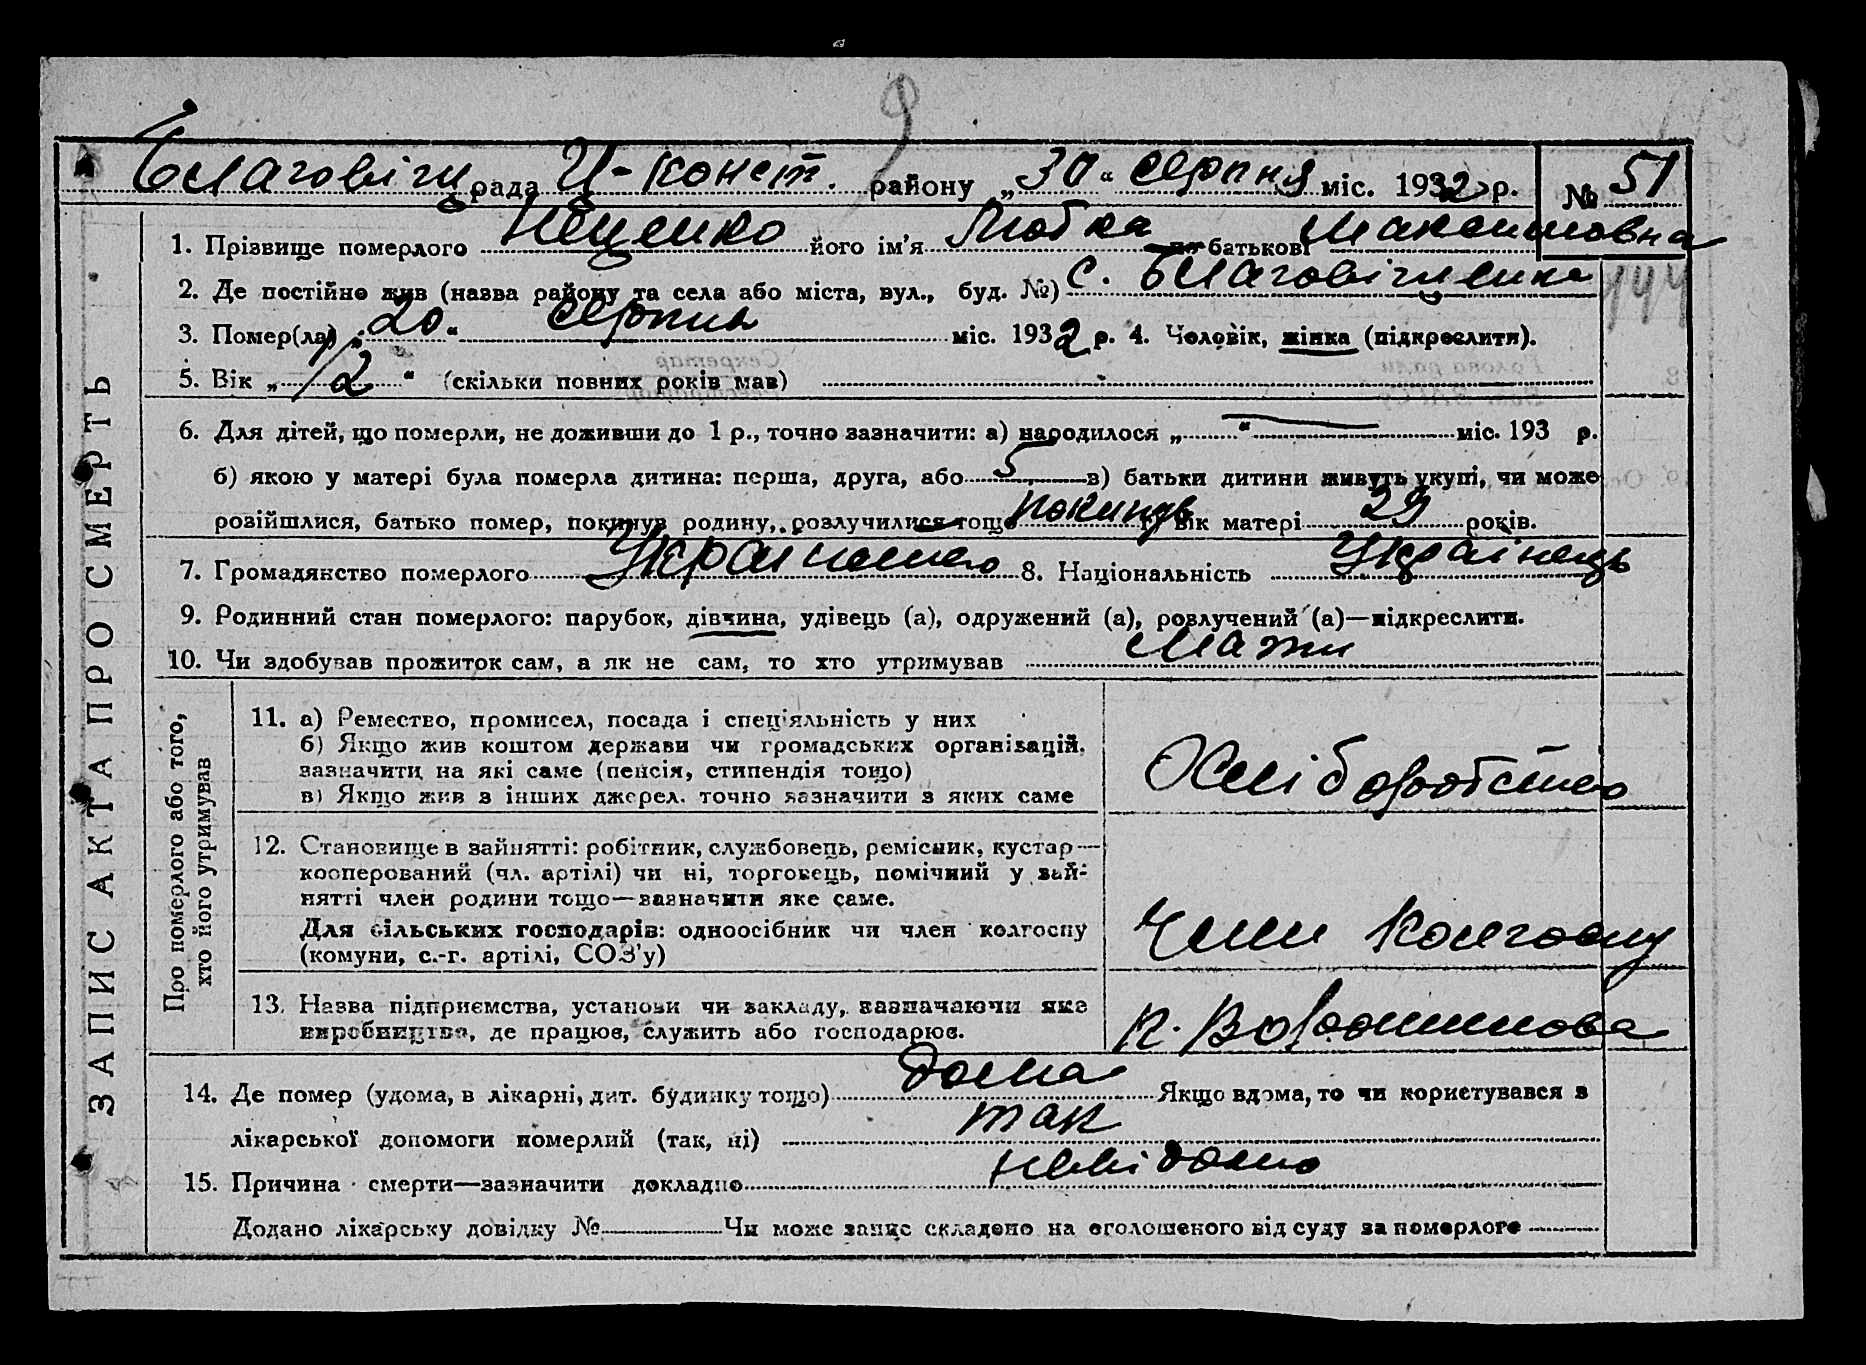 9
Благовіщ рада Ц-Конст. району „30“ серпня міс. 1932 р. № 51
1. Прізвище померлого Неценко його ім'я Любка по батькові Максимовна
2. Де постійно жив (назва району та села або міста, вул., буд. №) с. Благовіщенка
3. Помер(ла) „20“ серпня міс. 1932 р. 4. Чоловік, жінка (підкреслити).
5. Вік „1/2“ (скільки повних років мав)
6. Для дітей, що померли, не доживши до 1 р., точно зазначити: а) народилося „ “ міс. 193 р.
б) якою у матері була померла дитина: перша, друга, або 5 в) батьки дитини живуть укупі, чи може
розійшлися, батько помер, покинув родину, розлучилися тощо покинув г) вік матері 29 років.
7. Громадянство померлого Українство 8. Національність Українець
9. Родинний стан померлого: парубок, дівчина, удівець (а), одружений (а), розлучений (а)—підкреслити.
10. Чи здобував прожиток сам, а як не сам, то хто утримував Мати
ЗАПИС АКТА ПРО СМЕРТЬ
Про померлого або того,
хто його утримував
11. а) Ремество, промисел, посада і спеціяльність у них
б) Якщо жив коштом держави чи громадських організацій,
зазначити на які саме (пенсія, стипендія тощо)
в) Якщо жив з інших джерел, точно зазначити з яких саме
Хліборобство
12. Становище в зайнятті: робітник, службовець, ремісник, кустар—
кооперований (чл. артілі) чи ні, торговець, помічний у зай-
нятті член родини тощо—зазначити яке саме.
Для сільських господарів: одноосібник чи член колгоспу
(комуни, с.-г. артілі, СОЗ'у)
Член Колгоспу
13. Назва підприємства, установи чи закладу, зазначаючи яке
виробництво, де працює, служить або господарює.
к. Ворошилова
14. Де помер (удома, в лікарні, дит. будинку тощо) дома Якщо вдома, то чи користувався з
лікарської допомоги померлий (так, ні) так
15. Причина смерти—зазначити докладно невідомо
Додано лікарську довідку № Чи може запис складено на оголошеного від суду за померлого